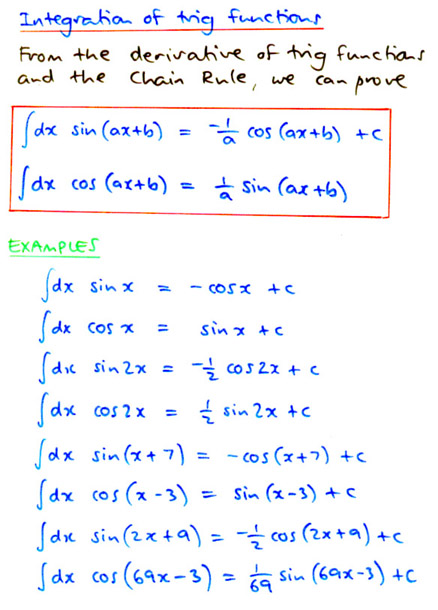 Integration of trig functions
From the derivative of trig functions
and the Chain Rule, we can prove
∫dx sin(ax+b) = -1/a cos(ax+b) +c
∫dx cos(ax+b) = 1/a sin(ax+b)
EXAMPLES
∫dx sinx = -cosx +c
∫dx cosx = sinx +c
∫dx sin2x = -1/2 cos2x + c
∫dx cos2x = 1/2 sin2x +c
∫dx sin(x+7) = -cos(x+7) +c
∫dx cos(x-3) = sin(x-3) +c
∫dx sin(2x+9) = -1/2 cos(2x+9) +c
∫dx cos(69x-3) = 1/69 sin(69x-3) +c